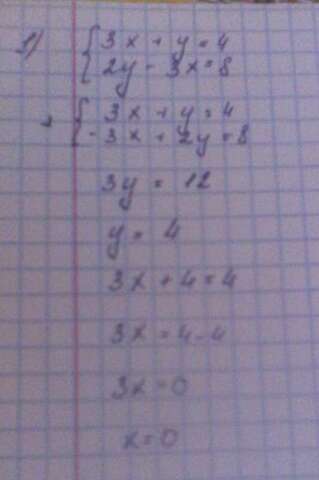 1) { 3x + y = 4
2y - 3x = 8
+ { 3x + y = 4
-3x + 2y = 8
3y = 12
y = 4
3x + 4 = 4
3x = 4 - 4
3x = 0
x = 0